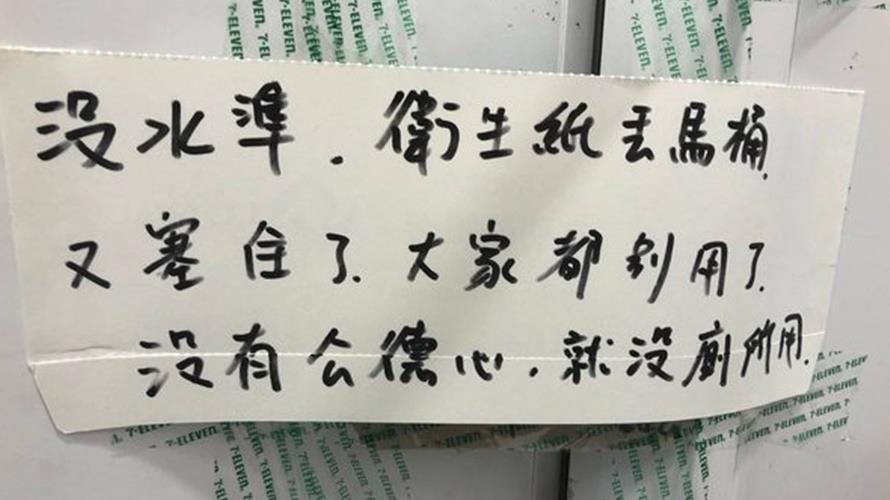 7-ELEVEN. 7-ELEVEN. 7-ELEVEN.
沒水準.衛生紙丟馬桶.
又塞住了.大家都別用了.
沒有公德心.就沒廁所用.
7-ELEVEN. 7-ELEVEN. 7-ELEVEN.